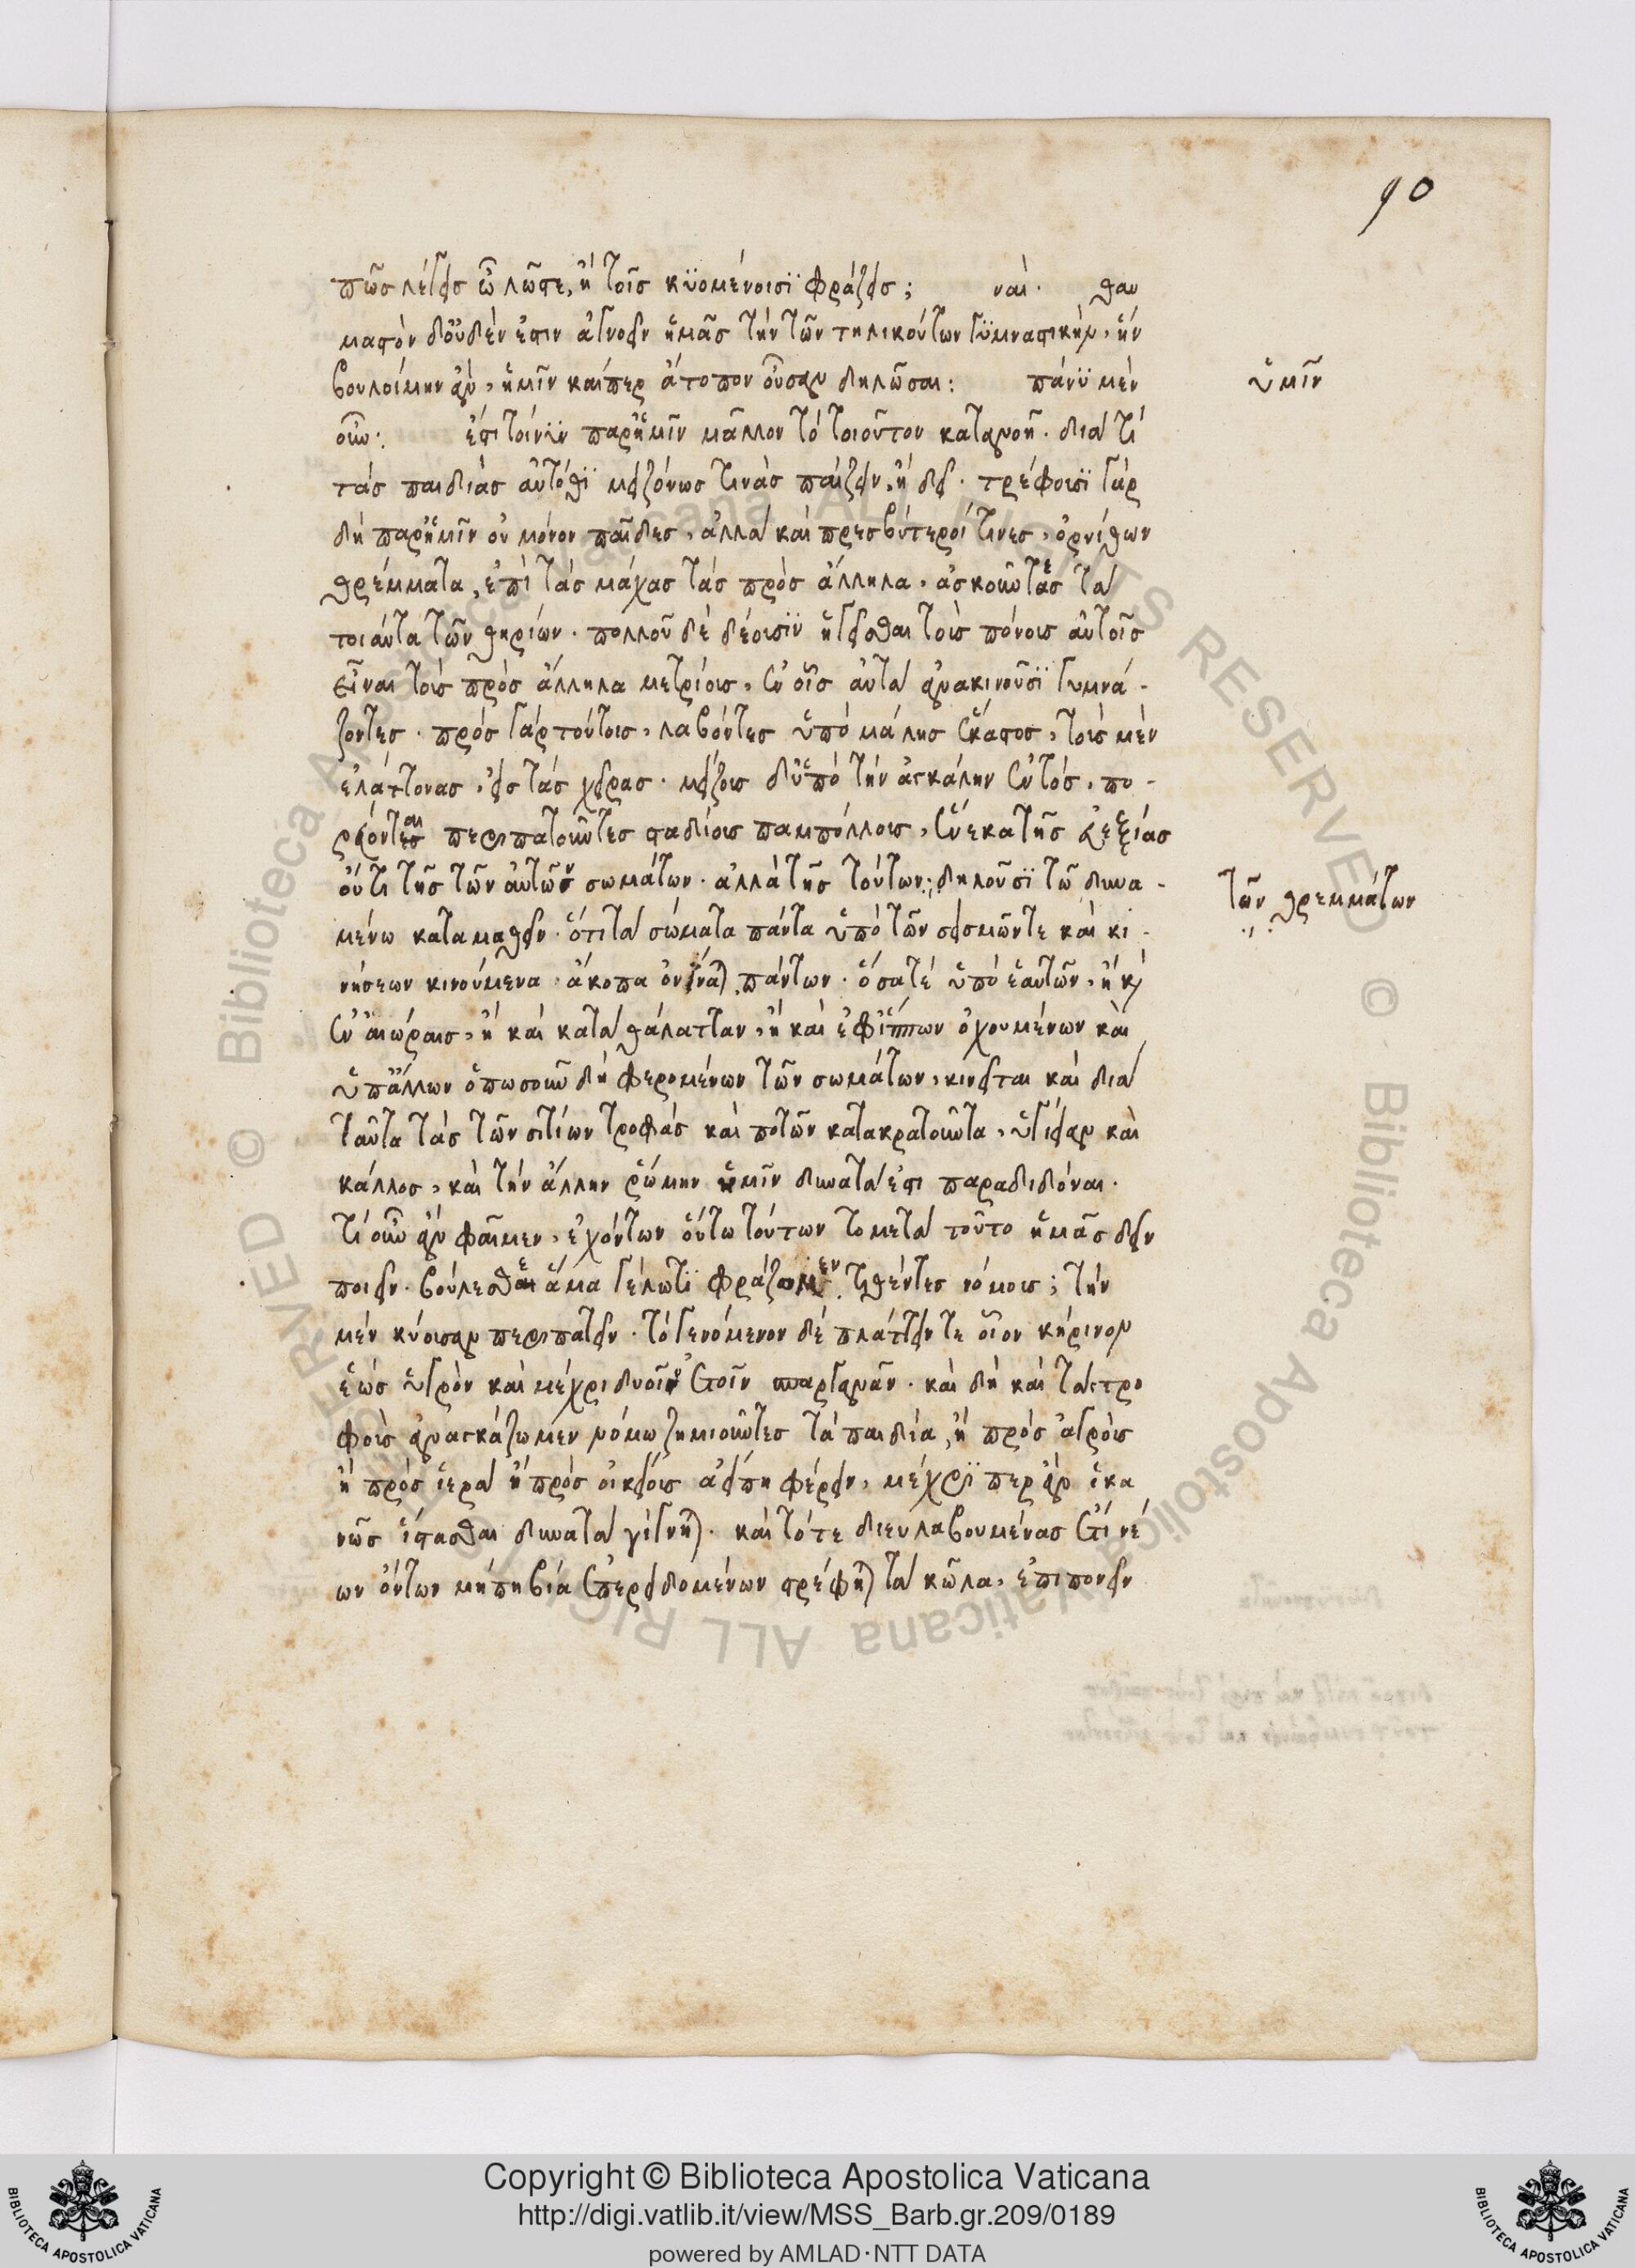 90
πῶς λέγεις ὦ λῶστε, ἢ τοῖς κϋομένοισϊ φράζεις; ναί. θαυ
μαστὸν δ' οὐδέν ἐστιν ἀγνοεῖν ἡμᾶς τὴν τῶν τηλικούτων γϋμναστικὴν, ἣν
βουλοίμην ἂν, ἡμῖν καίπερ ἄτοπον οὖσαν δηλῶσαι: πάνϋ μὲν
ὑμῖν
οὖν: ἔστι τοίνϋν παρ' ἡμῖν μᾶλλον τὸ τοιοῦτον κατανοῆ. διὰ τὸ
τὰς παιδιὰς αὐτόθϊ μειζόνως τινὰς παίζειν, ἢ δεῖ. τρέφουσϊ γὰρ
δὴ παρ' ἡμῖν οὐ μόνον παῖδες, ἀλλὰ καὶ πρεσβύτεροί τινες, ὀρνίθων
θρέμματα, ἐπὶ τὰς μάχας τὰς πρὸς ἄλληλα, ἀσκοῦντες τὰ
τοιαῦτα τῶν θηρίων. πολλοῦ δὲ δέουσϊν ἡγεῖσθαι τοὺς πόνους αὐτοῖς
εἶναι τοὺς πρὸς ἄλληλα μετρίους, ἐν οἷς αὐτὰ ἀνακινοῦσϊ γυμνά-
ζοντες. πρὸς γὰρ τούτοις, λαβόντες ὑπὸ μάλης ἕκαστος, τοὺς μὲν
ἐλάττονας, εἰς τὰς χεῖρας. μείζους δ' ὑπὸ τὴν ἀγκάλην ἐντός, πο-
ρεύονται περιπατοῦντες σταδίους παμπόλλους, ἕνεκα τῆς εὐεξίας
οὔτι τῆς τῶν αὐτῶν σωμάτων. ἀλλὰ τῆς τούτων; δηλοῦσϊ τῶ δυνα-
τῶν θρεμμάτων
μένω καταμαθεῖν. ὅτι τὰ σώματα πάντα ὑπὸ τῶν σεισμῶν τε καὶ κι-
νήσεων κινούμενα. ἄκοπα ὀνίναται πάντων. ὅσα τέ ὑπὸ ἑαυτῶν, ἢ καὶ
ἐν αἰώραις, ἢ καὶ κατὰ θάλατταν, ἢ καὶ ἐφ' ἵππων ὀχουμένων καὶ
ὑπ' ἄλλων ὁπωσοῦν δὴ φερομένων τῶν σωμάτων, κινεῖται καὶ διὰ
ταῦτα τὰς τῶν σιτίων τροφὰς καὶ ποτῶν κατακρατοῦντα, ὑγίειαν καὶ
κάλλος, καὶ τὴν ἄλλην ῥώμην ἡμῖν δυνατά ἐστι παραδιδόναι.
τί οὖν ἂν φαῖμεν, ἐχόντων οὕτω τούτων τὸ μετὰ τοῦτο ἡμᾶς δεῖν
ποιεῖν. βούλεσθε ἅμα γέλωτϊ φράζωμεν τιθέντες νόμους; τὴν
μὲν κύουσαν περιπατεῖν. τὸ γενόμενον δὲ πλάττειν τε οἷον κήρινον
ἕως ὑγρὸν καὶ μέχρι δυοῖν ἐτοῖν σπαργανᾶν. καὶ δὴ καὶ τὰς τρο
φοὺς ἀναγκάζωμεν νόμω ζημιοῦντες τὰ παιδία, ἢ πρὸς ἀγροὺς
ἢ πρὸς ἱερὰ ἢ πρὸς οἰκείους ἀεί πη φέρειν, μέχριϊ περ ἂν ἱκα
νῶς ἵστασθαι δυνατὰ γίγνηται. καὶ τότε διευλαβουμένας ἔτι νέ
ων ὄντων μή πη βία ἐπερειδομένων στρέφηται τὰ κῶλα, ἐπιπονεῖν
Copyright © Biblioteca Apostolica Vaticana
http://digi.vatlib.it/view/MSS_Barb.gr.209/0189
powered by AMLAD·NTT DATA